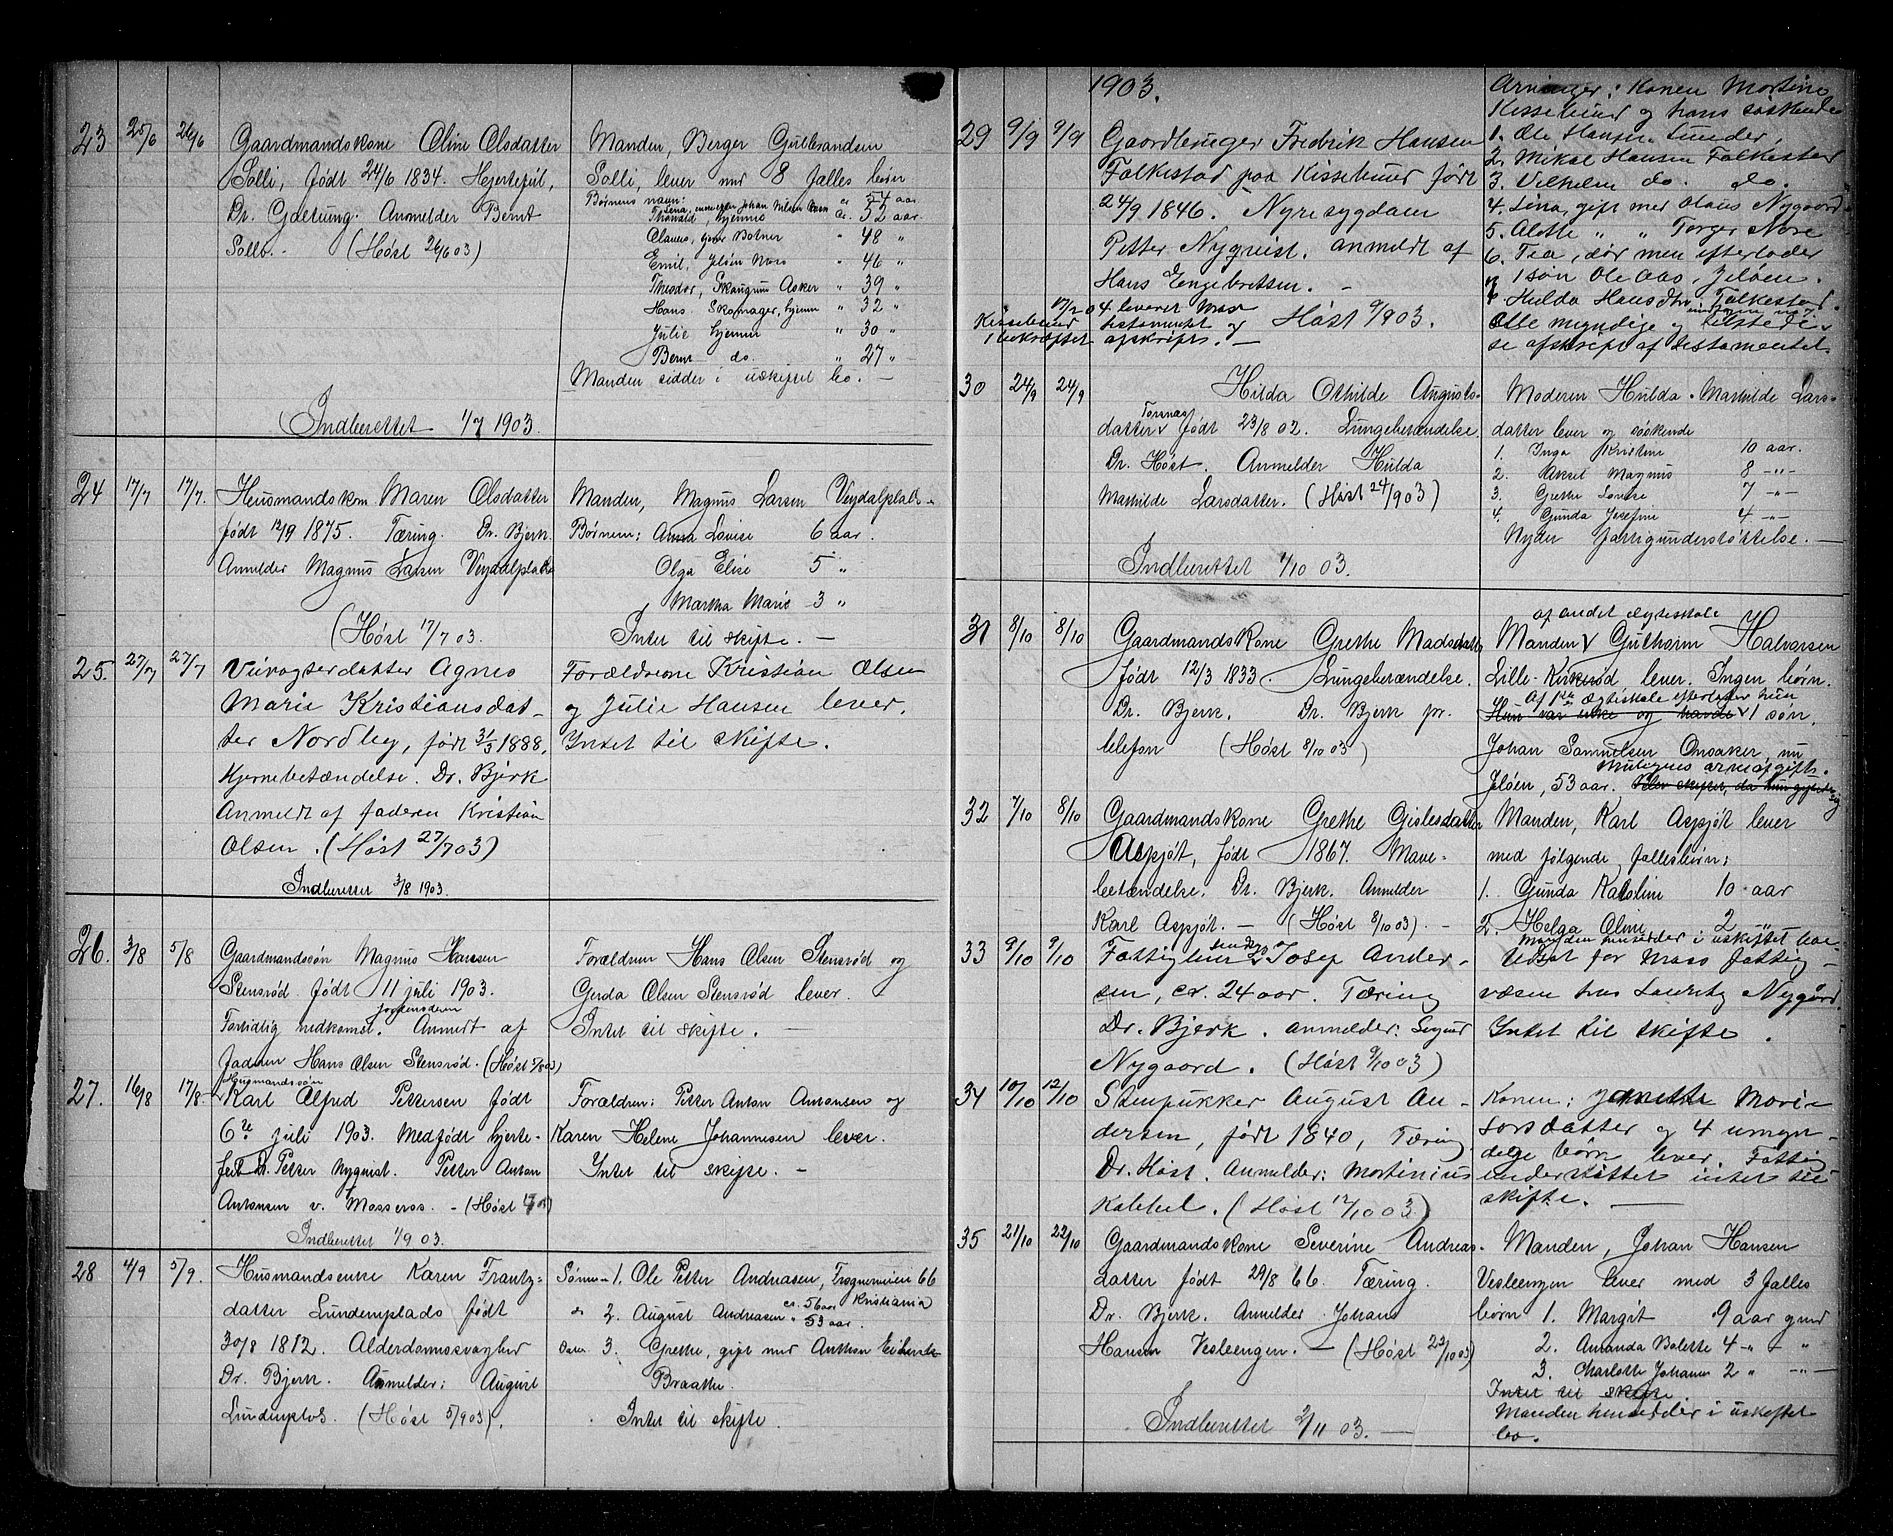 23 25/6 26/6 Gaardmandskone Oline Olsdatter
Solli, født 24/6 1834. Hjertefeil,
Dr. Galtung. Anmelder Bernt
Solli. (Høst 26/6 03)
Indberettet 1/7 1903.
Manden, Berger Gulbrandsen
Solli, lever med 8 fælles børn.
Børnenes navn: Johan Nilsen 54 aar
Thorvald hjemme 52 aar
Olaves, 48 "
Emil, Jeløen Moss " 46 "
Theodor, Skaugum Asker " 39 "
Hans Skomager, hjem " 32 "
Julie hjemme " 30 "
Bernt do. " 27 "
Manden sidder i uskiftet bo. —
24 17/7 17/7. Husmandskone Maren Olsdatter
født 12/9 1875. Tæring. Dr. Bjerk.
Anmelder Magnus Larsen Vejdalplads
(Høst 17/7 03.
Manden, Magnus Larsen Vejdalplads.
Børnene: Anna Lovise 6 aar.
Olga Elise 5 "
Martha Marie 3 "
Intet til skifte. —
25. 27/7 27/7 Veivogterdatter Agnes
Marie Kristiansdat-
ter Nordby, født 31/3 1888.
Hjernebetændelse. Dr. Bjerk
Anmeldt af faderen Kristian
Olsen. (Høst 27/7 03)
Indberettet 3/8 1903.
Forældrene Kristian Olsen
og Julie Hansen lever.
Intet til skifte.
26. 3/8 5/8 Gaardmandssøn Magnus Hansen
Stensrød født 11 juli 1903.
Fortidlig nedkomst. Anmeldt af
faderen Hans Olsen Stensrød. (Høst 5/8 03)
Forældrene Hans Olsen Stensrød og
Gerda Olsen Stensrød lever.
Intet til skifte. —
27. 16/8 17/8 Husmandssøn
Karl Alfred Pettersen født
6te juli 1903. Medfødt hjerte-
feil Dr. Petter Nyquist. Petter Anton
Antonsen v. Mosseros. – (Høst 03)
Indberettet 1/9 03.
Forældrene: Petter Anton Antonsen og
Karen Helene Johannesen lever.
Intet til skifte. —
28 4/9 5/9. Husmandsenke Karen Frantz-
datter Lundenplads født
30/8 1812. Alderdomssvaghed
Dr. Bjerk. Anmelder: August
Lundenplds. (Høst 5/9 03).
Sønnen 1. Ole Petter Andreasen, Trognerveien 66
cr. 56 aar Kristiania
do 2. August Andreasen " 53 aar.
Dater 3. Grethe, gift med Anthon
Braathe.
Intet til skifte.
1903.
29 9/9 9/9 Gaardbruger Fredrik Hansen
Falkestad paa Kissebund født
24/9 1846. Nyresygdom
Petter Nyquist. anmeldt af
Hans Engebretsen. —
17/2 04 leveret Moss
Kissebund testamentet og Høst 9/9 03.
1 bekræftet afskrift. —
Arvinger: Konen Mortine
Kissebund og hans søskende
1. Ole Hansen Sunder,
2. Mikal Hansen Falkestad
3. Vilhelm do. do.
4. Lina, gift med Olaus Nygaard
5. Alette " " Torger Nore
6. Tea, død men efterlader
1 søn Ole Aas Jeløen.
7 Hulda Hansdtr. Falkestad.
Alle myndige og tilstede
se afskrift af testamentet.
30 24/9 24/9 Hilda Othilde Augusts-
datter Torsnæs født 23/8 02. Lungebetændelse
Dr. Høst. Anmelder Hulda
Mathilde Larsdatter. (Høst 24/9 03)
Indberettet 1/10 03.
Moderen Hulda Mathilde Lars-
datter lever og søskende
1. Inga Kristine 10 aar.
2. Aksel Magnus 8 -"-
3. Grethe Lovise 7 -"-
4. Gunda Josefine 4 -"-
Nyder fattigunderstøttelse. —
31 8/10 8/10 Gaardmandskone Grethe Madsdatter
født 12/3 1833. Lungebetændelse.
Dr. Bjerk. Dr. Bjerk pr.
telefon (Høst 8/10 03)
af andet ægteskab
Manden Guthorm Halvorsen
Lille-Kirkerød lever. Ingen børn.
Af 1ste ægteskab efterlader hun
Hun var enke og havde 1 søn,
Johan Samuelsen Onsaker, nu
Jeløen, 53 aar.
32 7/10 8/10 Gaardmandskone Grethe Gislesdatter
Aspjøt, født 1867. Mave-
betændelse. Dr. Bjerk. Anmelder
Karl Aspjøt. — (Høst 8/10 03). –
Manden, Karl Aspjøt lever
med følgende fællesbørn:
1. Gunda Karoline 10 aar
2. Helga Oline 2 —"—
Manden hensidder i uskiftet bo
33 9/10 9/10 Fattiglem Josef Ander-
sen, cr. 24 aar. Tæring
Dr. Bjerk. anmelder: Sigurd
Nygaard. (Høst 9/10 03)
Udsat for Moss fattig-
væsen hos Lauritz Nygård
Intet til skifte.
34 10/10 12/10 Stenpukker August An-
dersen, født 1840, Tæring
Dr. Høst. Anmelder: Mortinius
Kabbel. (Høst 12/10 03)
Konen: Janette Mari-
dsdatter og 4 umyn-
dige børn lever. Fattig
understøttet intet til
skifte. —
35 21/10 22/10 Gaardmandskone Severine Andreas-
datter født 29/8 66. Tæring.
Dr. Bjerk. Anmelder Johans
Hansen Vesleengen. — (Høst 22/10 03)
Indberettet 2/11 03. —
Manden, Johan Hansen
Vesleengen lever med 3 fælles
børn 1. Margit 9 aar gml
2. Amanda Balette 4 -"- "
3. Charlotte Johanne 2 " -"-
Intet til skifte.
Manden hensidder i uskiftet
bo.